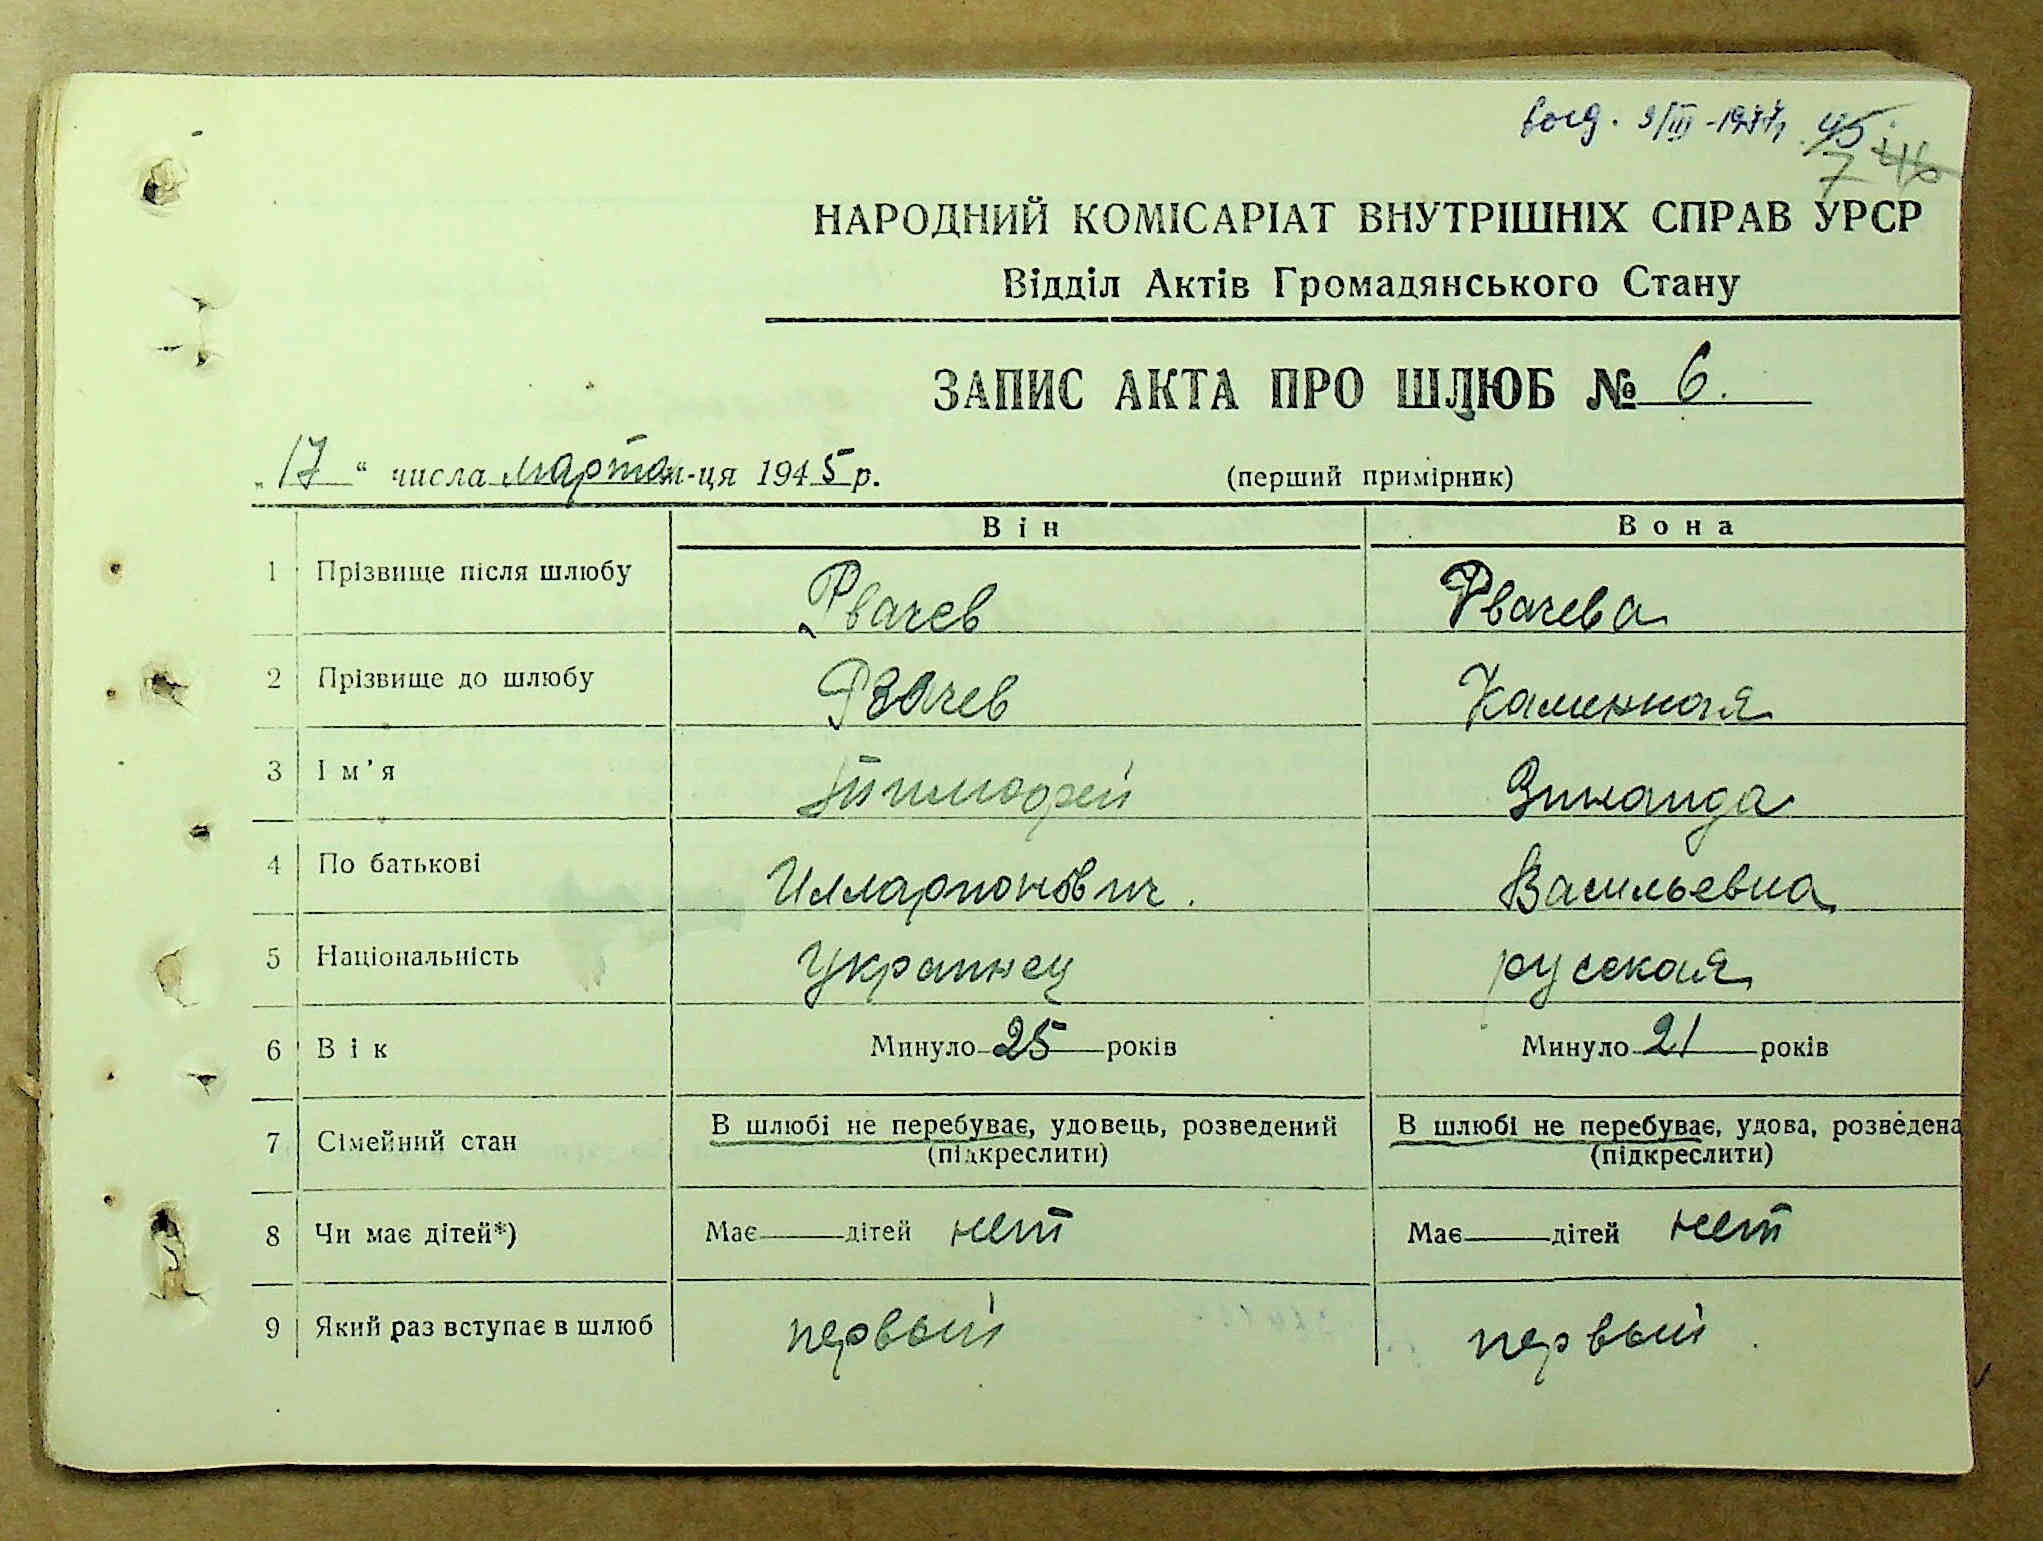 9/III-1977г. 45
7 46
НАРОДНИЙ КОМІСАРІАТ ВНУТРІШНІХ СПРАВ УРСР
Відділ Актів Громадянського Стану
ЗАПИС АКТА ПРО ШЛЮБ № 6.
„17“ числа марта м-ця 1945 р. (перший примірник)
Він Вона
1 Прізвище після шлюбу Рвачев Рвачева
2 Прізвище до шлюбу Рвачев Каменная
3 Ім'я Тимофей Зинаида
4 По батькові Илларионович. Васильевна
5 Національність Украинец русская
6 Вік Минуло 25 років Минуло 21 років
7 Сімейний стан В шлюбі не перебуває, удовець, розведений (підкреслити) В шлюбі не перебуває, удова, розведена (підкреслити)
8 Чи має дітей*) Має дітей нет Має дітей нет
9 Який раз вступає в шлюб первый первый